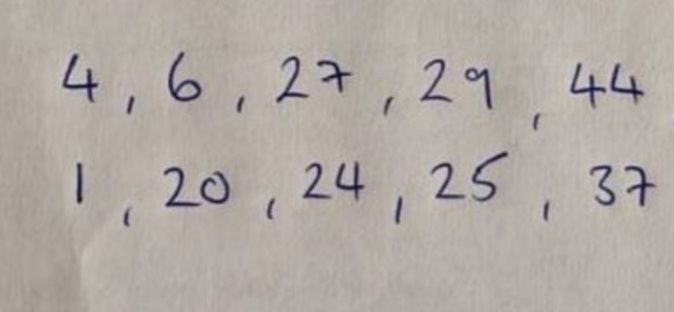 4, 6, 27, 29, 44
1, 20, 24, 25, 37